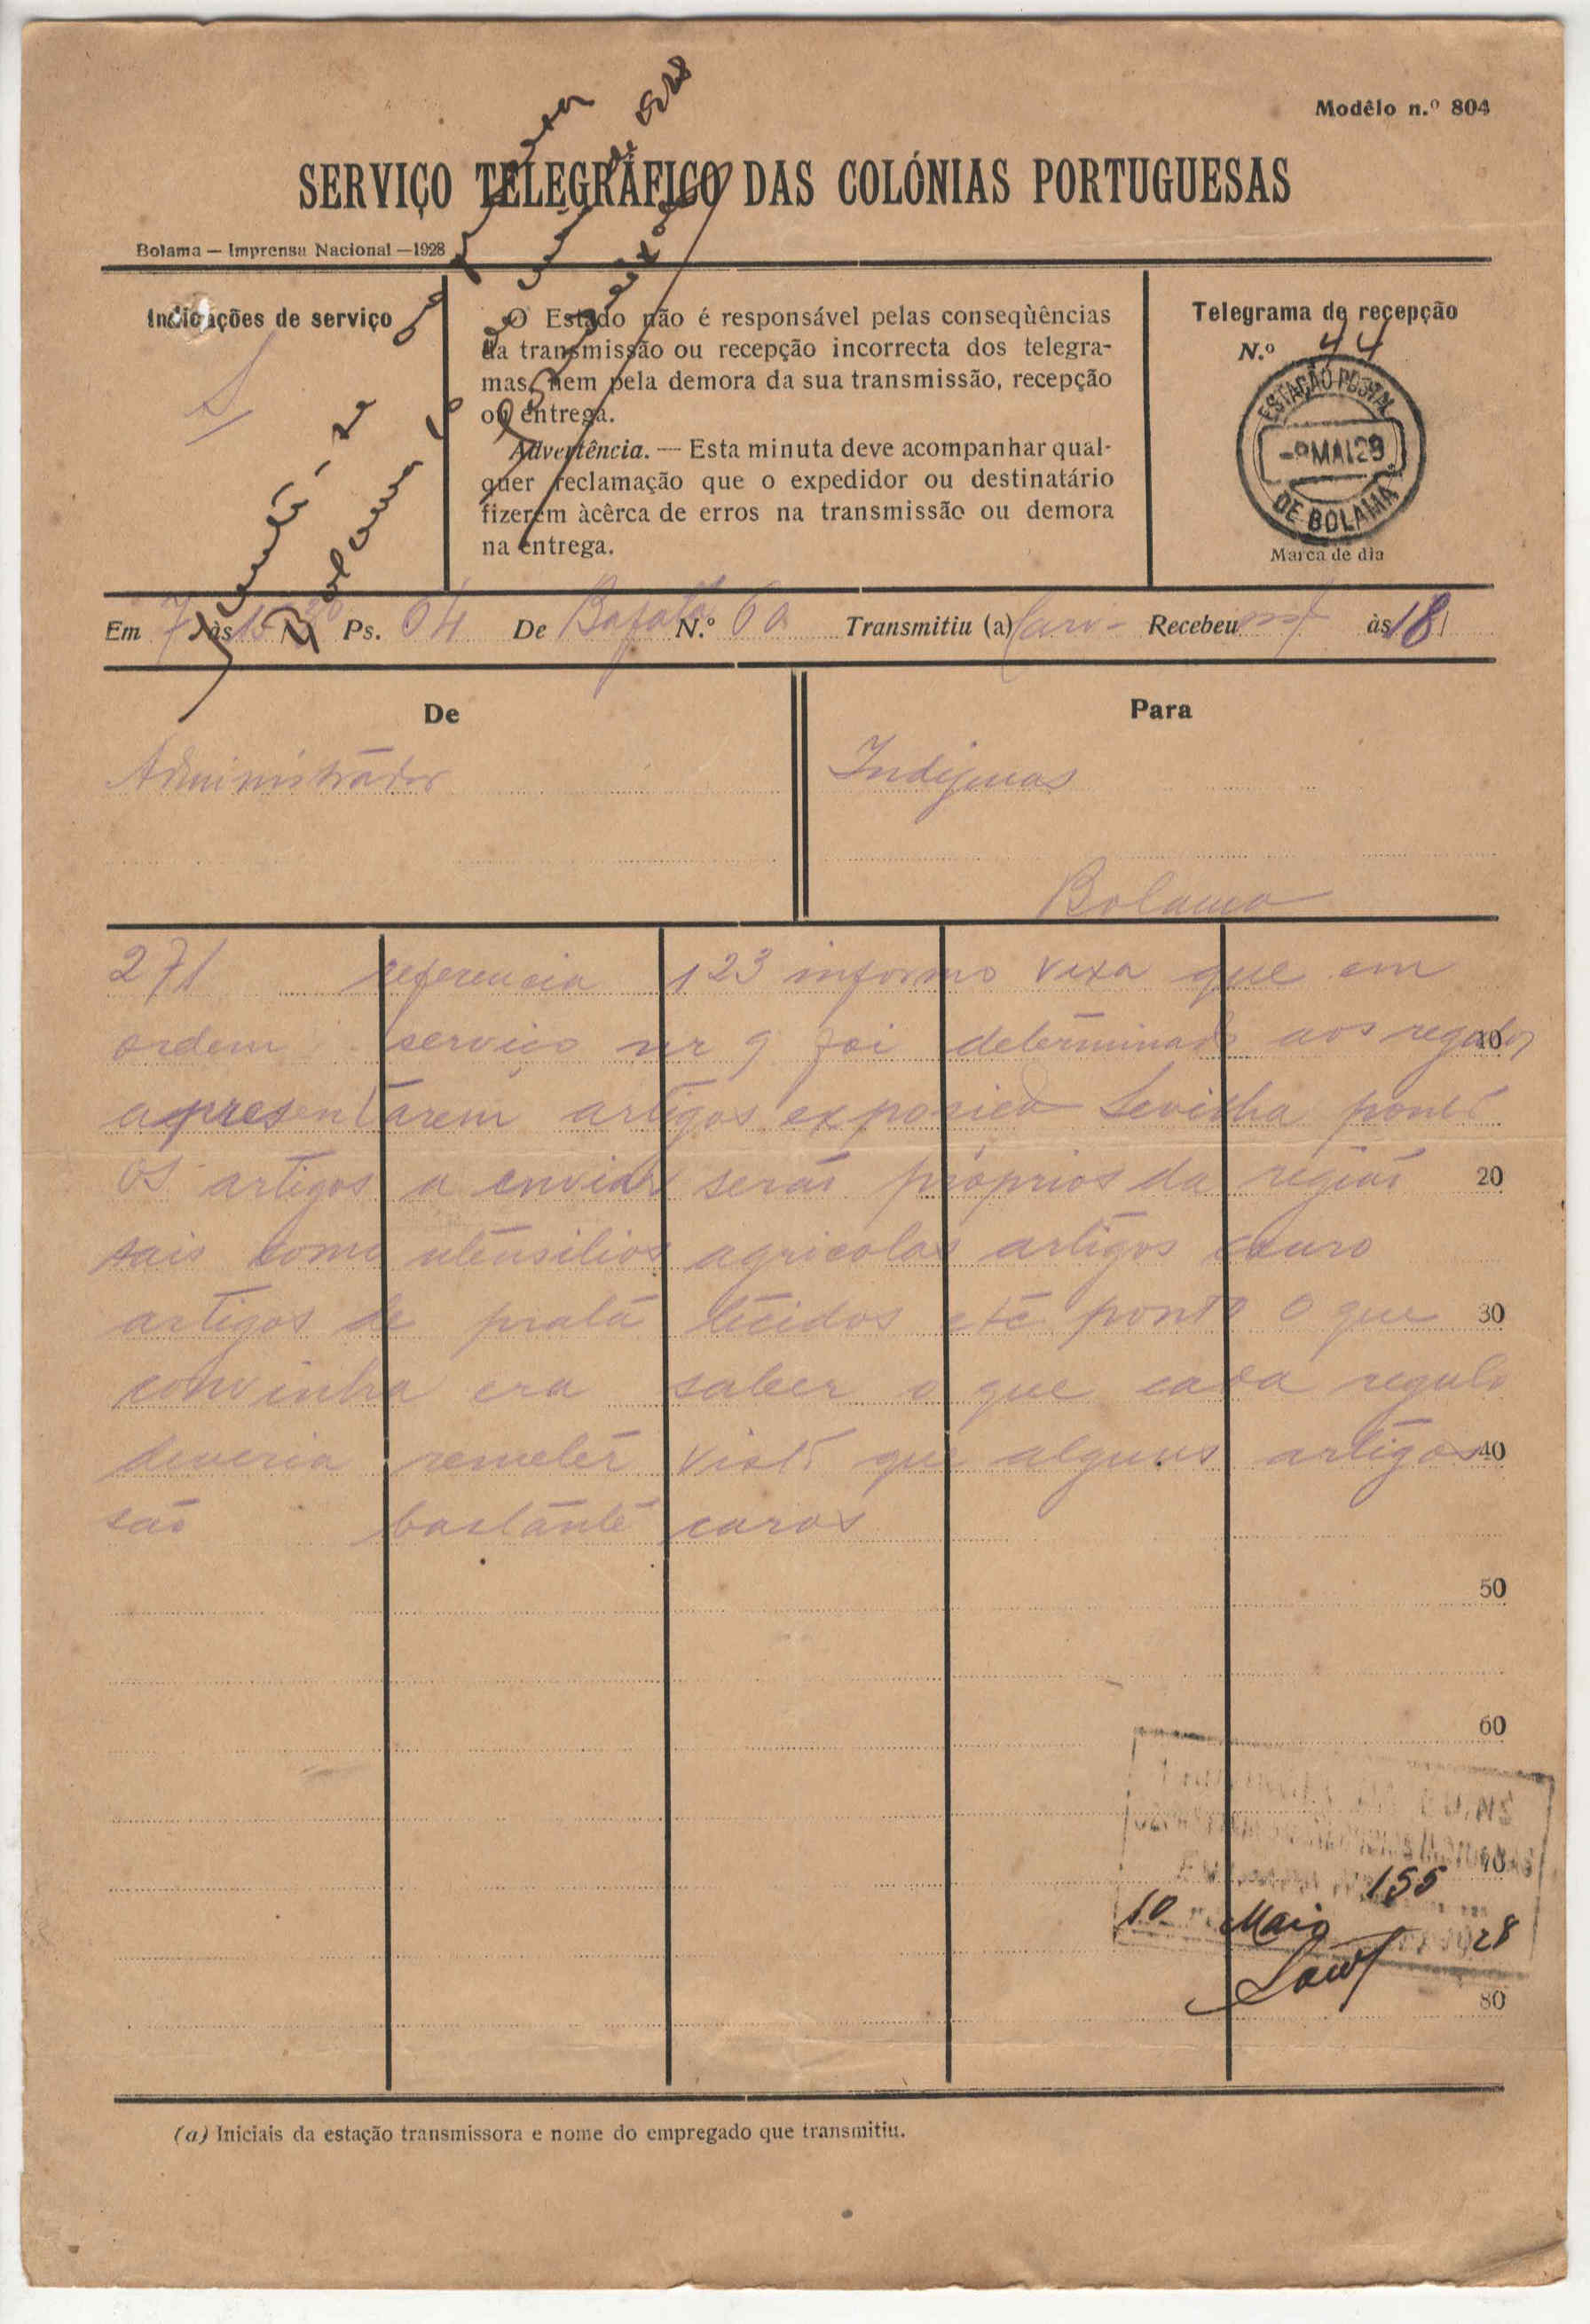 Modêlo n.º 804
SERVIÇO TELEGRÁFICO DAS COLÓNIAS PORTUGUESAS
Bolama — Imprensa Nacional — 1928
Indicações de serviço
O Estado não é responsável pelas conseqùências
da transmissão ou recepção incorrecta dos telegra-
mas, nem pela demora da sua transmissão, recepção
ou entrega.
Advertência. — Esta minuta deve acompanhar qual-
quer reclamação que o expedidor ou destinatário
fizerem àcêrca de erros na transmissão ou demora
na entrega.
Telegrama de recepção
N.º 44
ESTAÇÃO POSTAL
MAI 29
DE BOLAMA
Marca de dia
Em 7 às 15 Ps. 64 De Bafatá N.º 60 Transmitiu (a) Recebeu às 18
De
Administrador
Para
Indigenas
Bolama
271 referencia 123 informo vexa que em
ordem serviço nr 9 foi determinado aos regulos 10
apresentarem artigos exposicao Sevilha ponto
os artigos a enviar serão próprios da região 20
tais como utensilios agricolas artigos couro
artigos de prata tecidos etc ponto o que 30
convinha era saber o que cada regulo
deveria remeter visto que alguns artigos 40
são bastante caros
50
60
70
155
10 Maio 1928
80
(a) Iniciais da estação transmissora e nome do empregado que transmitiu.